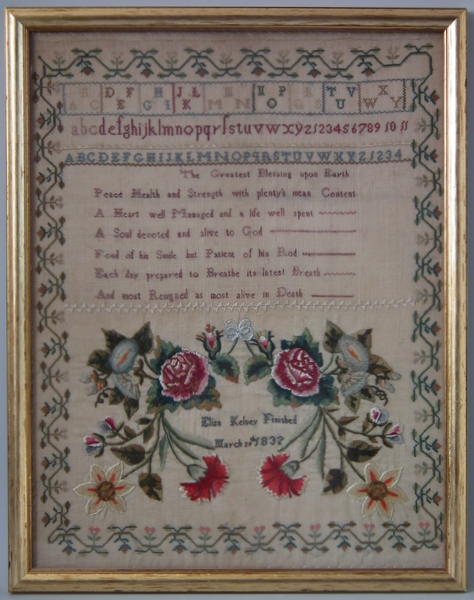 A B C D E F G H I J K L M N O P Q R S T U V W X Y
abcdefghijklmnopqrſstuvwxyz1234567891011
ABCDEFGHIJKLMNOPQRSTUVWXYZ1234
The Greatest Blessing upon Earth
Peace Health and Strength with plenty's mean Content
A Heart well Managed and a life well spent
A Soul devoted and alive to God
Fond of his Smile but Patient of his Rod
Each day prepared to Breathe its latest Breath
And most Resigned as most alive in Death
Eliza Kelsey Finished
March